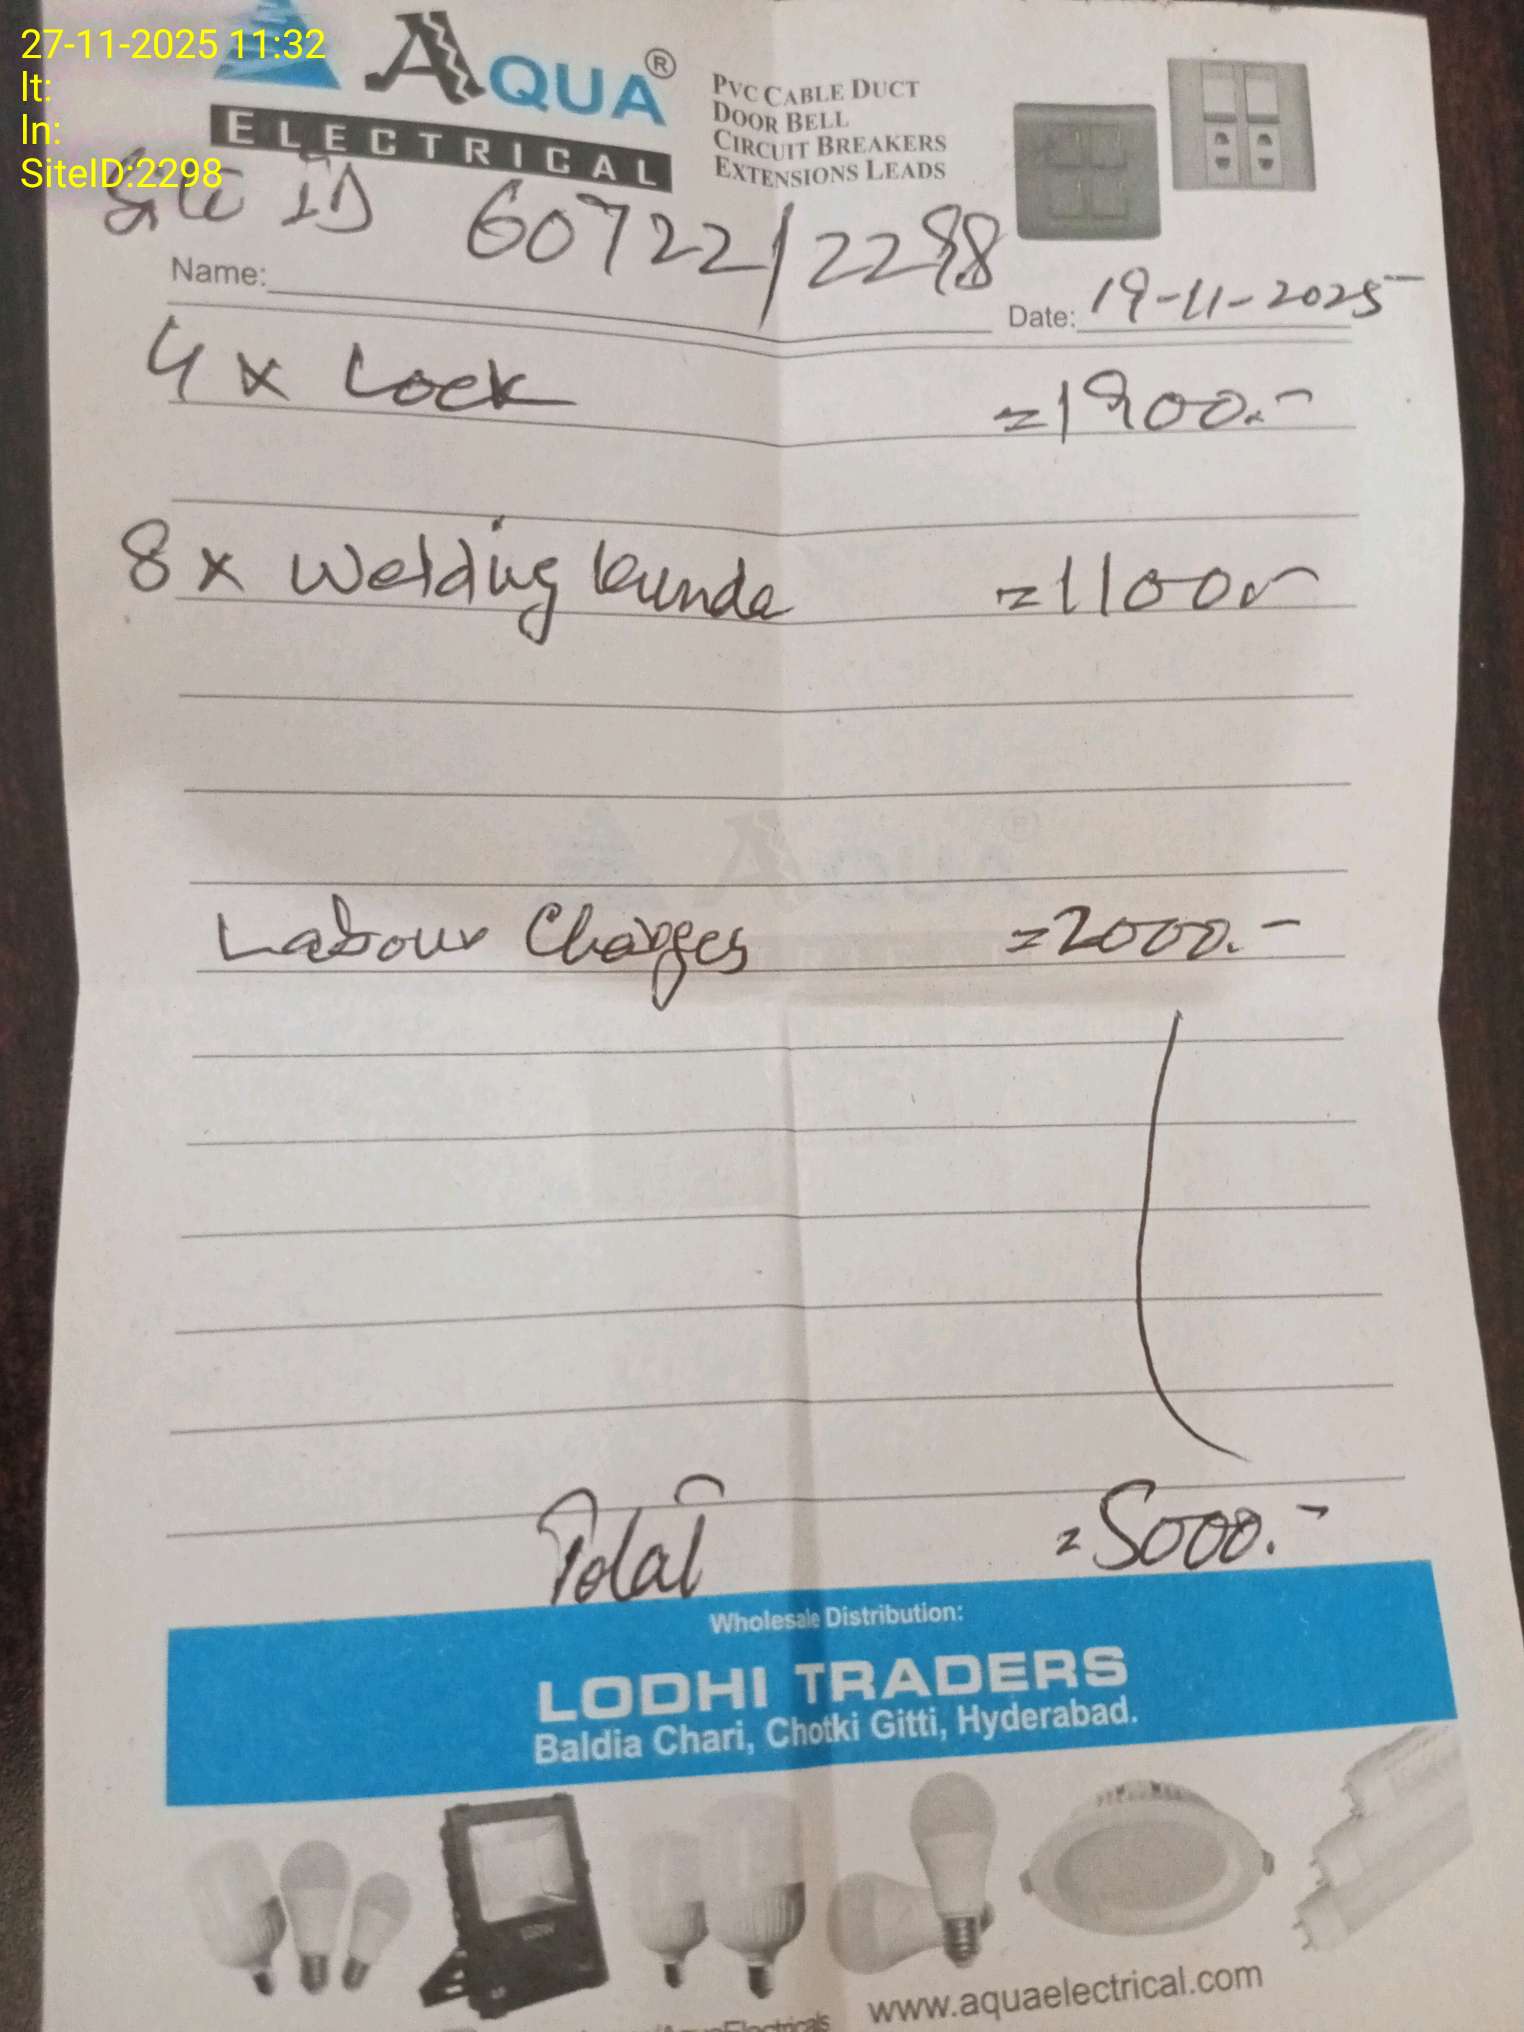 27-11-2025 11:32
lt:
ln:
SiteID:2298
AQUA®
ELECTRICAL
PVC CABLE DUCT
DOOR BELL
CIRCUIT BREAKERS
EXTENSIONS LEADS
Site ID 60722/2298
Name:
Date: 19-11-2025
4 x Lock =1900.-
8 x Welding kunda =1100.-
Labour Charges =2000.-
Total =5000.-
Wholesale Distribution:
LODHI TRADERS
Baldia Chari, Chotki Gitti, Hyderabad.
www.aquaelectrical.com